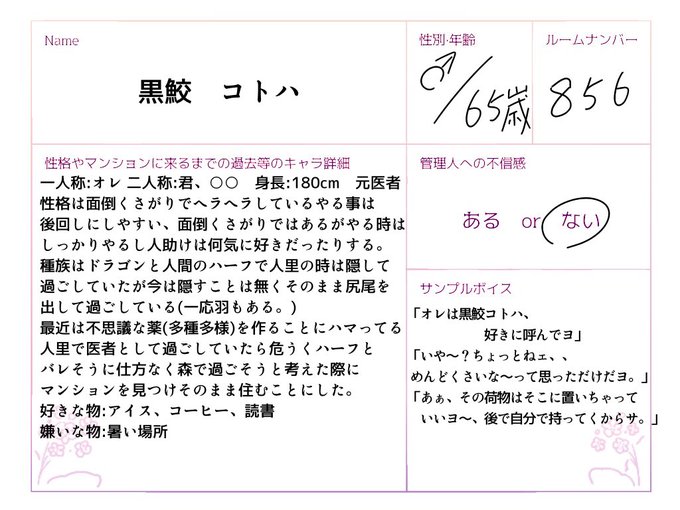 Name
黒鮫　コトハ
性別・年齢
♂/65歳
ルームナンバー
856
性格やマンションに来るまでの過去等のキャラ詳細
一人称:オレ 二人称:君、〇〇　身長:180cm　元医者
性格は面倒くさがりでヘラヘラしているやる事は
後回しにしやすい、面倒くさがりではあるがやる時は
しっかりやるし人助けは何気に好きだったりする。
種族はドラゴンと人間のハーフで人里の時は隠して
過ごしていたが今は隠すことは無くそのまま尻尾を
出して過ごしている(一応羽もある。)
最近は不思議な薬(多種多様)を作ることにハマってる
人里で医者として過ごしていたら危うくハーフと
バレそうに仕方なく森で過ごそうと考えた際に
マンションを見つけそのまま住むことにした。
好きな物:アイス、コーヒー、読書
嫌いな物:暑い場所
管理人への不信感
ある　or　ない
サンプルボイス
「オレは黒鮫コトハ、
好きに呼んでヨ」
「いや〜？ちょっとねェ、、
めんどくさいな〜って思っただけだヨ。」
「あぁ、その荷物はそこに置いちゃって
いいヨ〜、後で自分で持ってくからサ。」